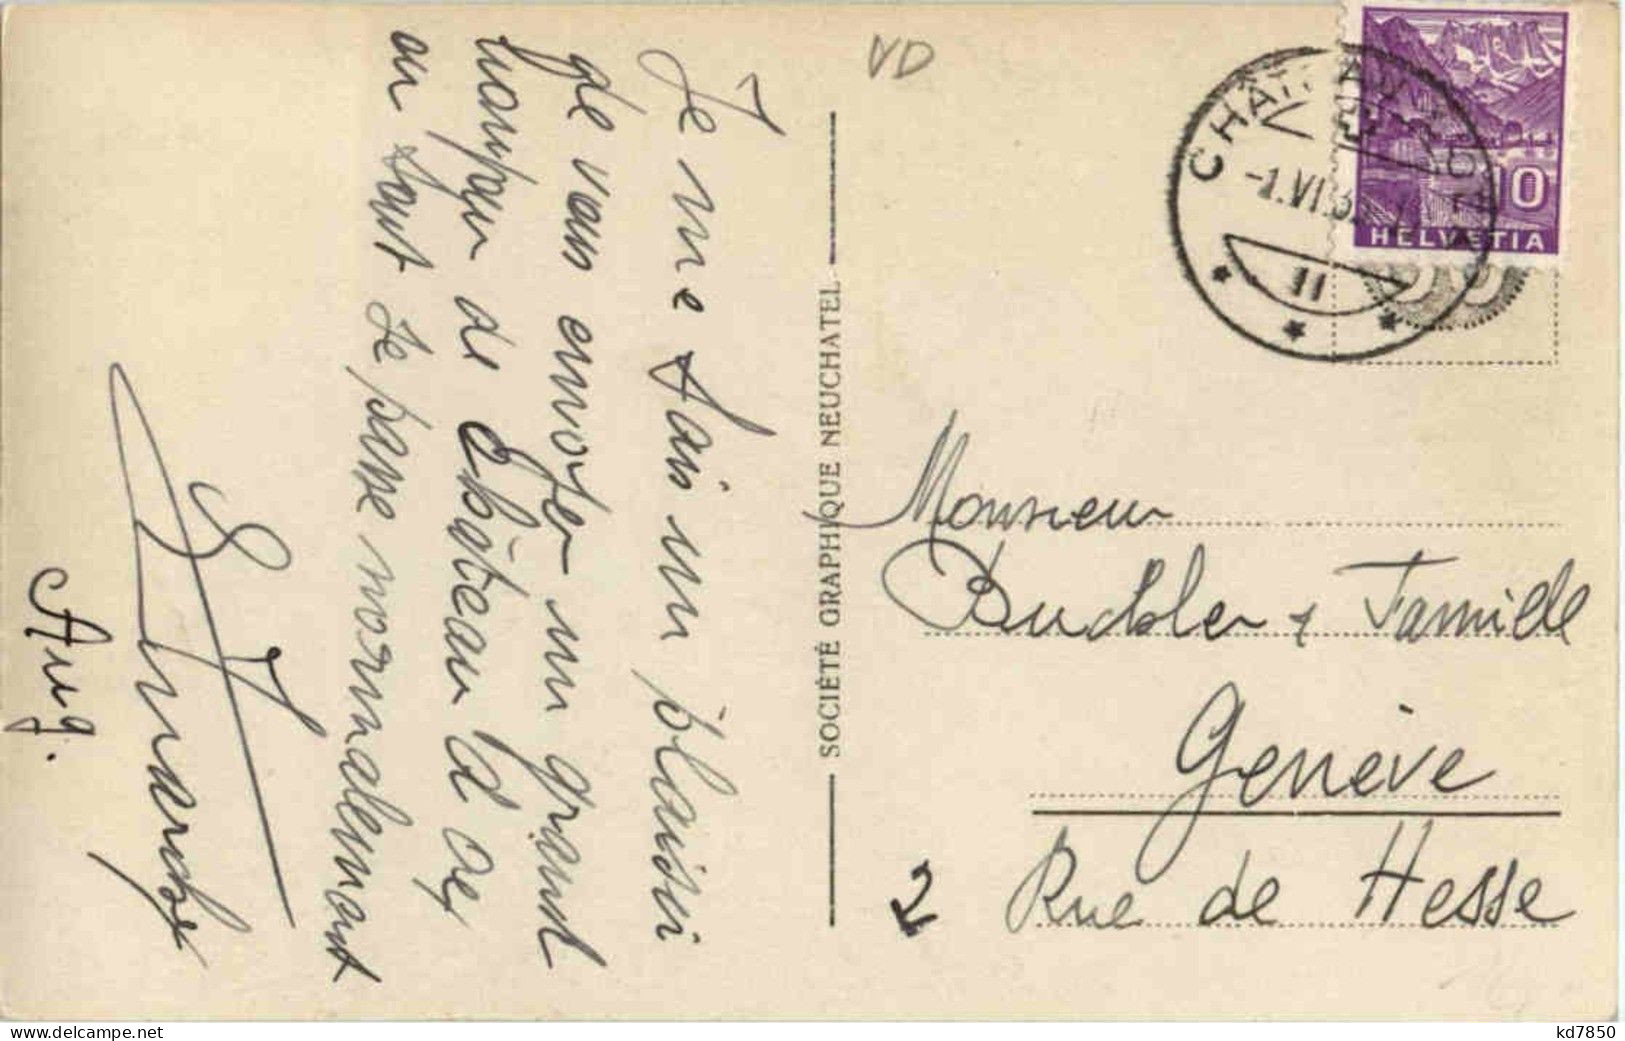 VD
CHÂTEAU-D'OEX
-1.VI.3
II
10
HELVETIA
Je me fais un plaisir
de vous envoyer un grand
bonjour de Château d'Oex
où tout se passe normalement
Aug.
SOCIÉTÉ GRAPHIQUE NEUCHATEL
Monsieur
Buchler & Famille
Genève
2 Rue de Hesse
www.delcampe.net
kd7850